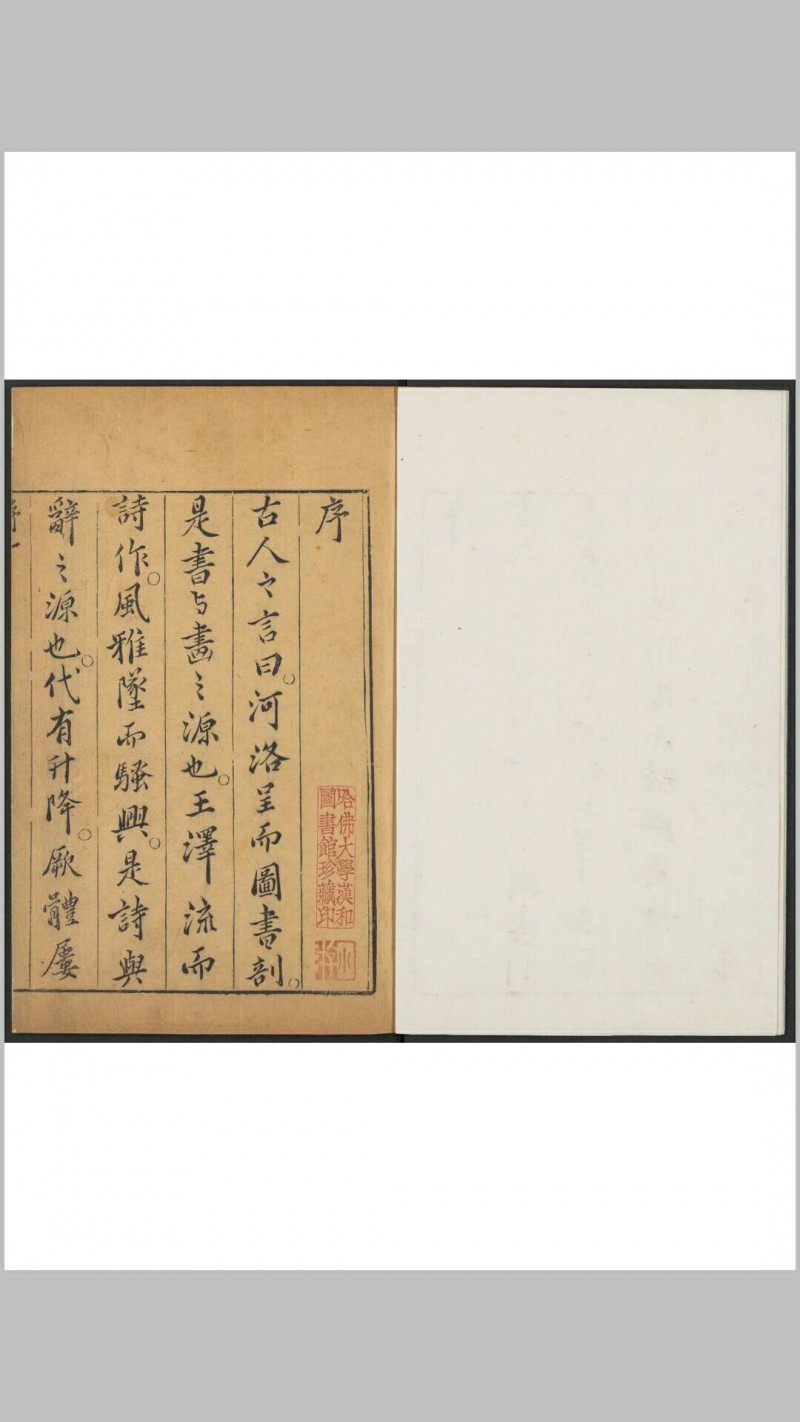 序
古人之言曰。河洛呈而圖書剖。
是書与畫之源也。王澤流而
詩作。風雅墜而騷興。是詩與
辭之源也。代有升降。厥體屢
哈佛大學漢和
圖書館珍藏印